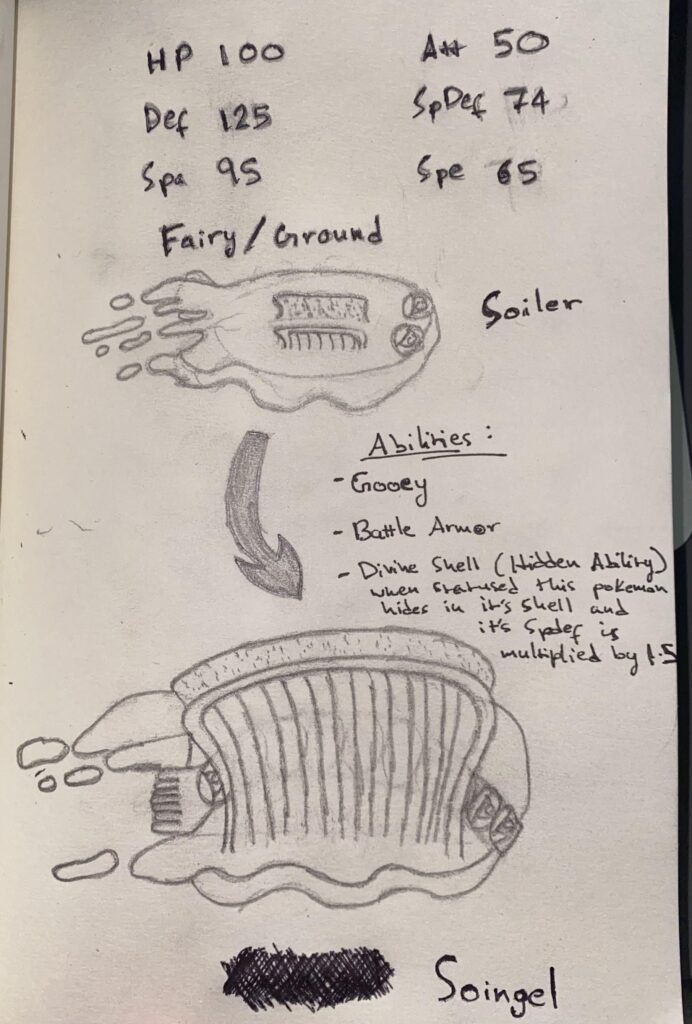 HP 100
Att 50
Def 125
SpDef 74
Spa 95
Spe 65
Fairy/Ground
Soiler
Abilities:
- Gooey
- Battle Armor
- Divine Shell (Hidden Ability)
when statused this pokemon
hides in it's shell and
it's Spdef is
multiplied by 1.5
Soingel